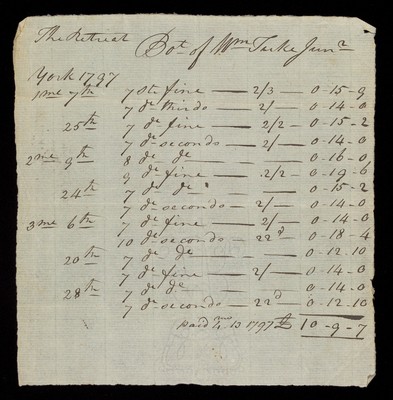 The Retreat
Bot of Wm Tuke Junr
York 1797
1 mo 7th 7 Ste fine — 2/3 — 0-15-9
7 do thirds — 2/ — 0-14-0
25th 7 do fine — 2/2 — 0-15-2
7 do seconds — 2/ — 0-14-0
2 mo 9th 8 do do — 0-16-0
9 do fine — 2/2 — 0-19-6
24th 7 do do — 0-15-2
7 do seconds — 2/ — 0-14-0
3 mo 6th 7 do fine — 2/ — 0-14-0
10 do seconds — 22d — 0-18-4
20th 7 do do — 0-12-10
7 do fine — 2/ — 0-14-0
28th 7 do do — 0-14-0
7 do seconds — 22d — 0-12-10
paid 4 mo 13 1797 £ 10-9-7